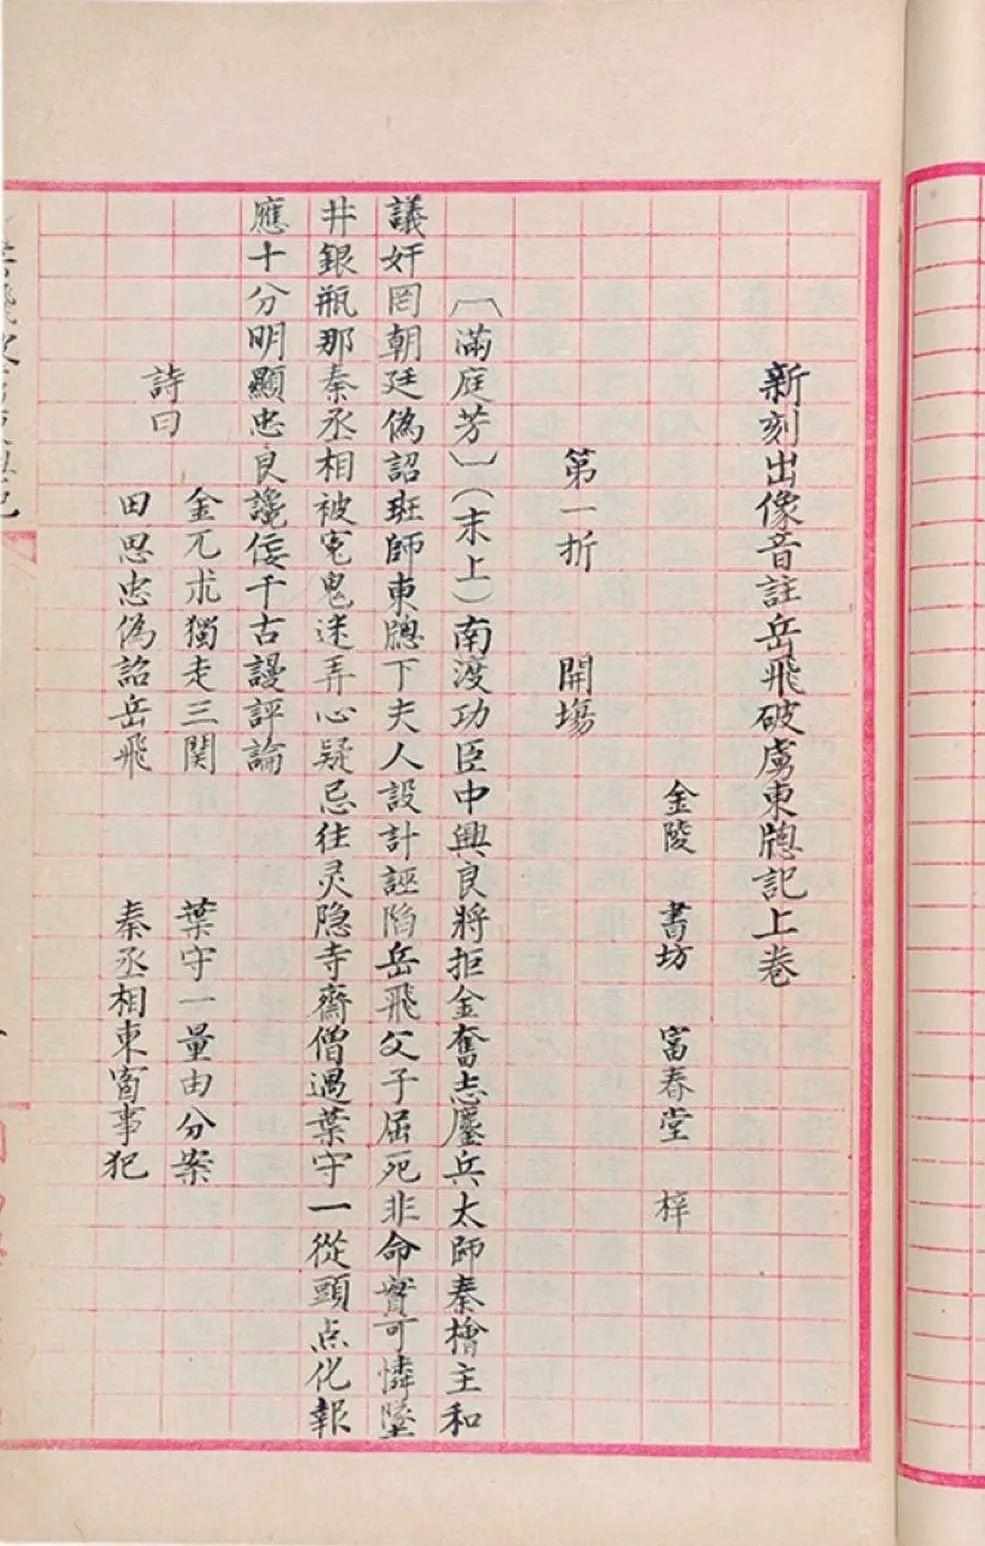 新刻出像音註岳飛破虜東牕記上卷
金陵 書坊 富春堂 梓
第一折 開場
〔滿庭芳〕（末上）南渡功臣中興良將拒金奮志鏖兵太師秦檜主和
議奸罔朝廷偽詔班師東牕下夫人設計誣陷岳飛父子屈死非命實可憐墜
井銀瓶那秦丞相被冤鬼迷弄心疑忌往灵隐寺齋僧遇葉守一從頭点化報
應十分明顯忠良讒佞千古謾評論
詩曰
金兀朮獨走三関 葉守一量由分案
田思忠偽詔岳飛 秦丞相東窗事犯